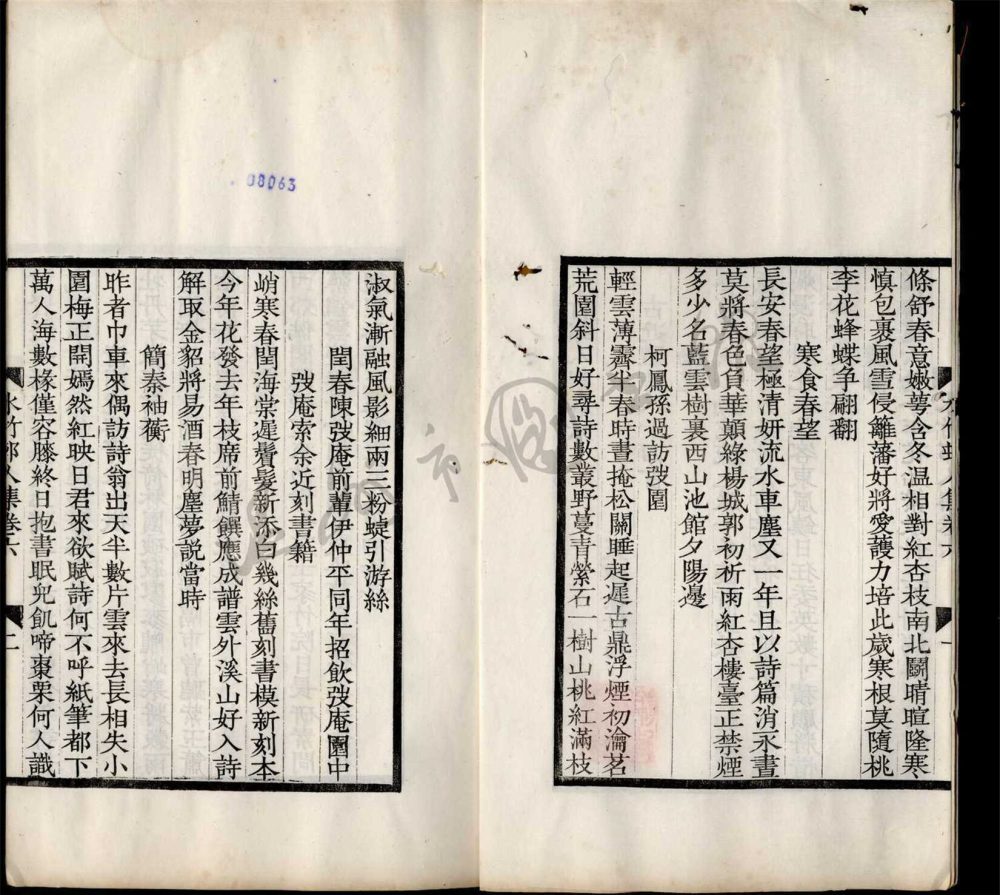 條舒春意嫩萼含冬溫相對紅杏枝南北鬬晴暄隆寒
慎包裹風雪侵籬藩好將愛護力培此歲寒根莫隨桃
李花蜂蝶争翩翻
寒食春望
長安春望極清妍流水車塵又一年且以詩篇消永晝
莫將春色負華顛綠楊城郭初祈雨紅杏樓臺正禁煙
多少名藍雲樹裏西山池館夕陽邊
柯鳳孫過訪弢園
輕雲薄霽半春時晝掩松關睡起遲古鼎浮煙初瀹茗
荒園斜日好尋詩數叢野蔓青縈石一樹山桃紅滿枝
淑氣漸融風影細兩三粉蜨引游絲
閏春陳弢庵前輩伊仲平同年招飲弢庵園中
弢庵索余近刻書籍
峭寒春閏海棠遲鬢髮新添白幾絲舊刻書模新刻本
今年花發去年枝席前鯖饌應成譜雲外溪山好入詩
解取金貂將易酒春明塵夢説當時
簡泰袖蘅
昨者巾車來偶訪詩翁出天半數片雲來去長相失小
園梅正開嫣然紅映日君來欲賦詩何不呼紙筆都下
萬人海數椽僅容膝終日抱書眠兒飢啼棗栗何人識
水竹邨人集卷六
二
08063